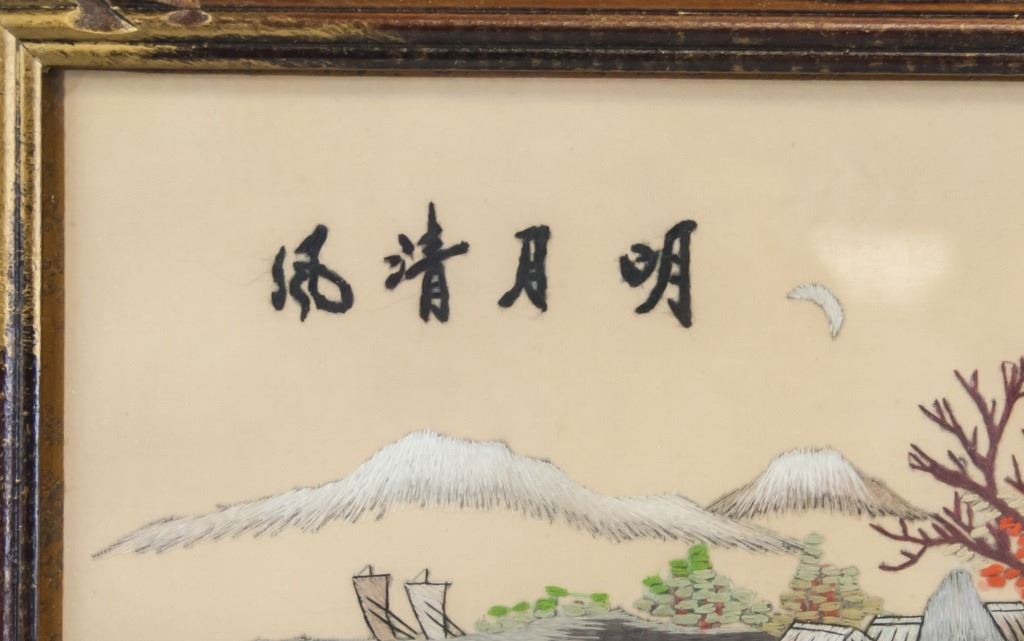 明月清風